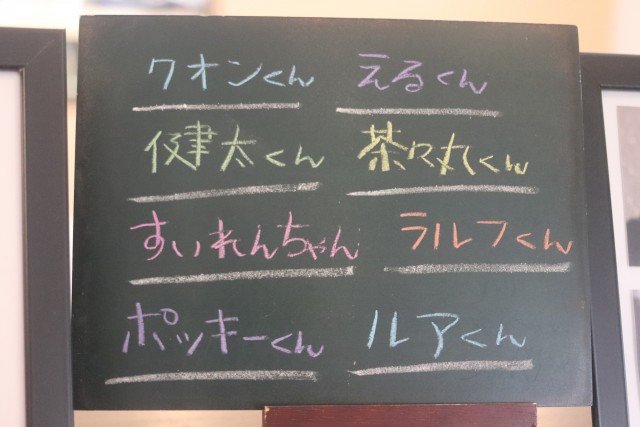 クオンくん えるくん
健太くん 茶々丸くん
すいれんちゃん ラルフくん
ポッキーくん ルアくん